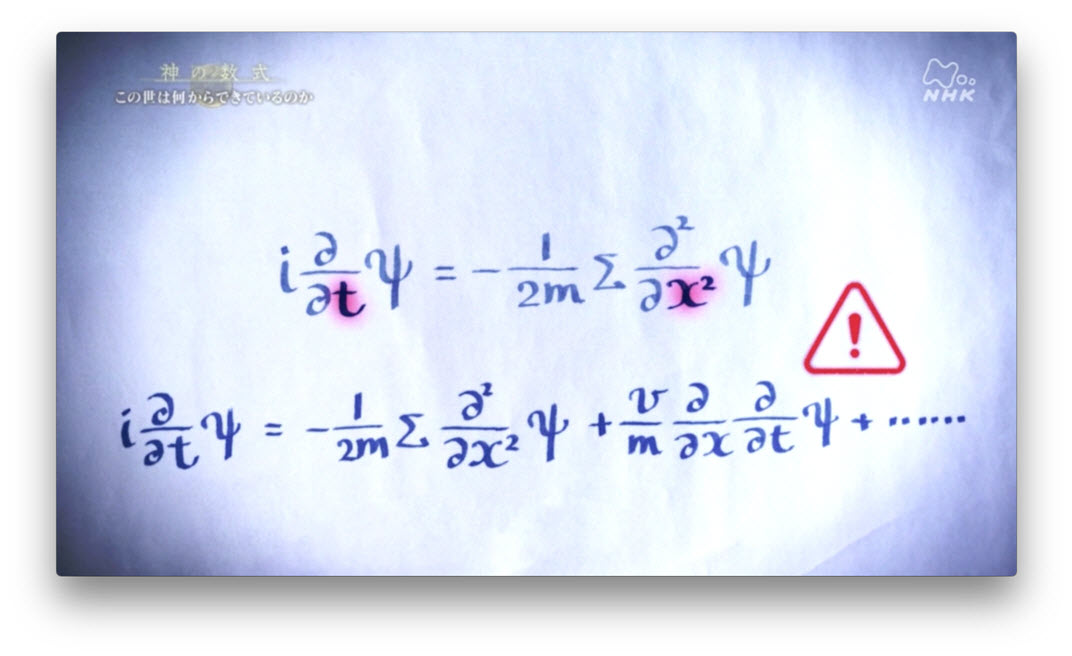 神の数式
この世は何からできているのか
NHK
i ∂/∂t ψ = − 1/2m Σ ∂²/∂x² ψ
!
i ∂/∂t ψ = − 1/2m Σ ∂²/∂x² ψ + v/m ∂/∂x ∂/∂t ψ + ……